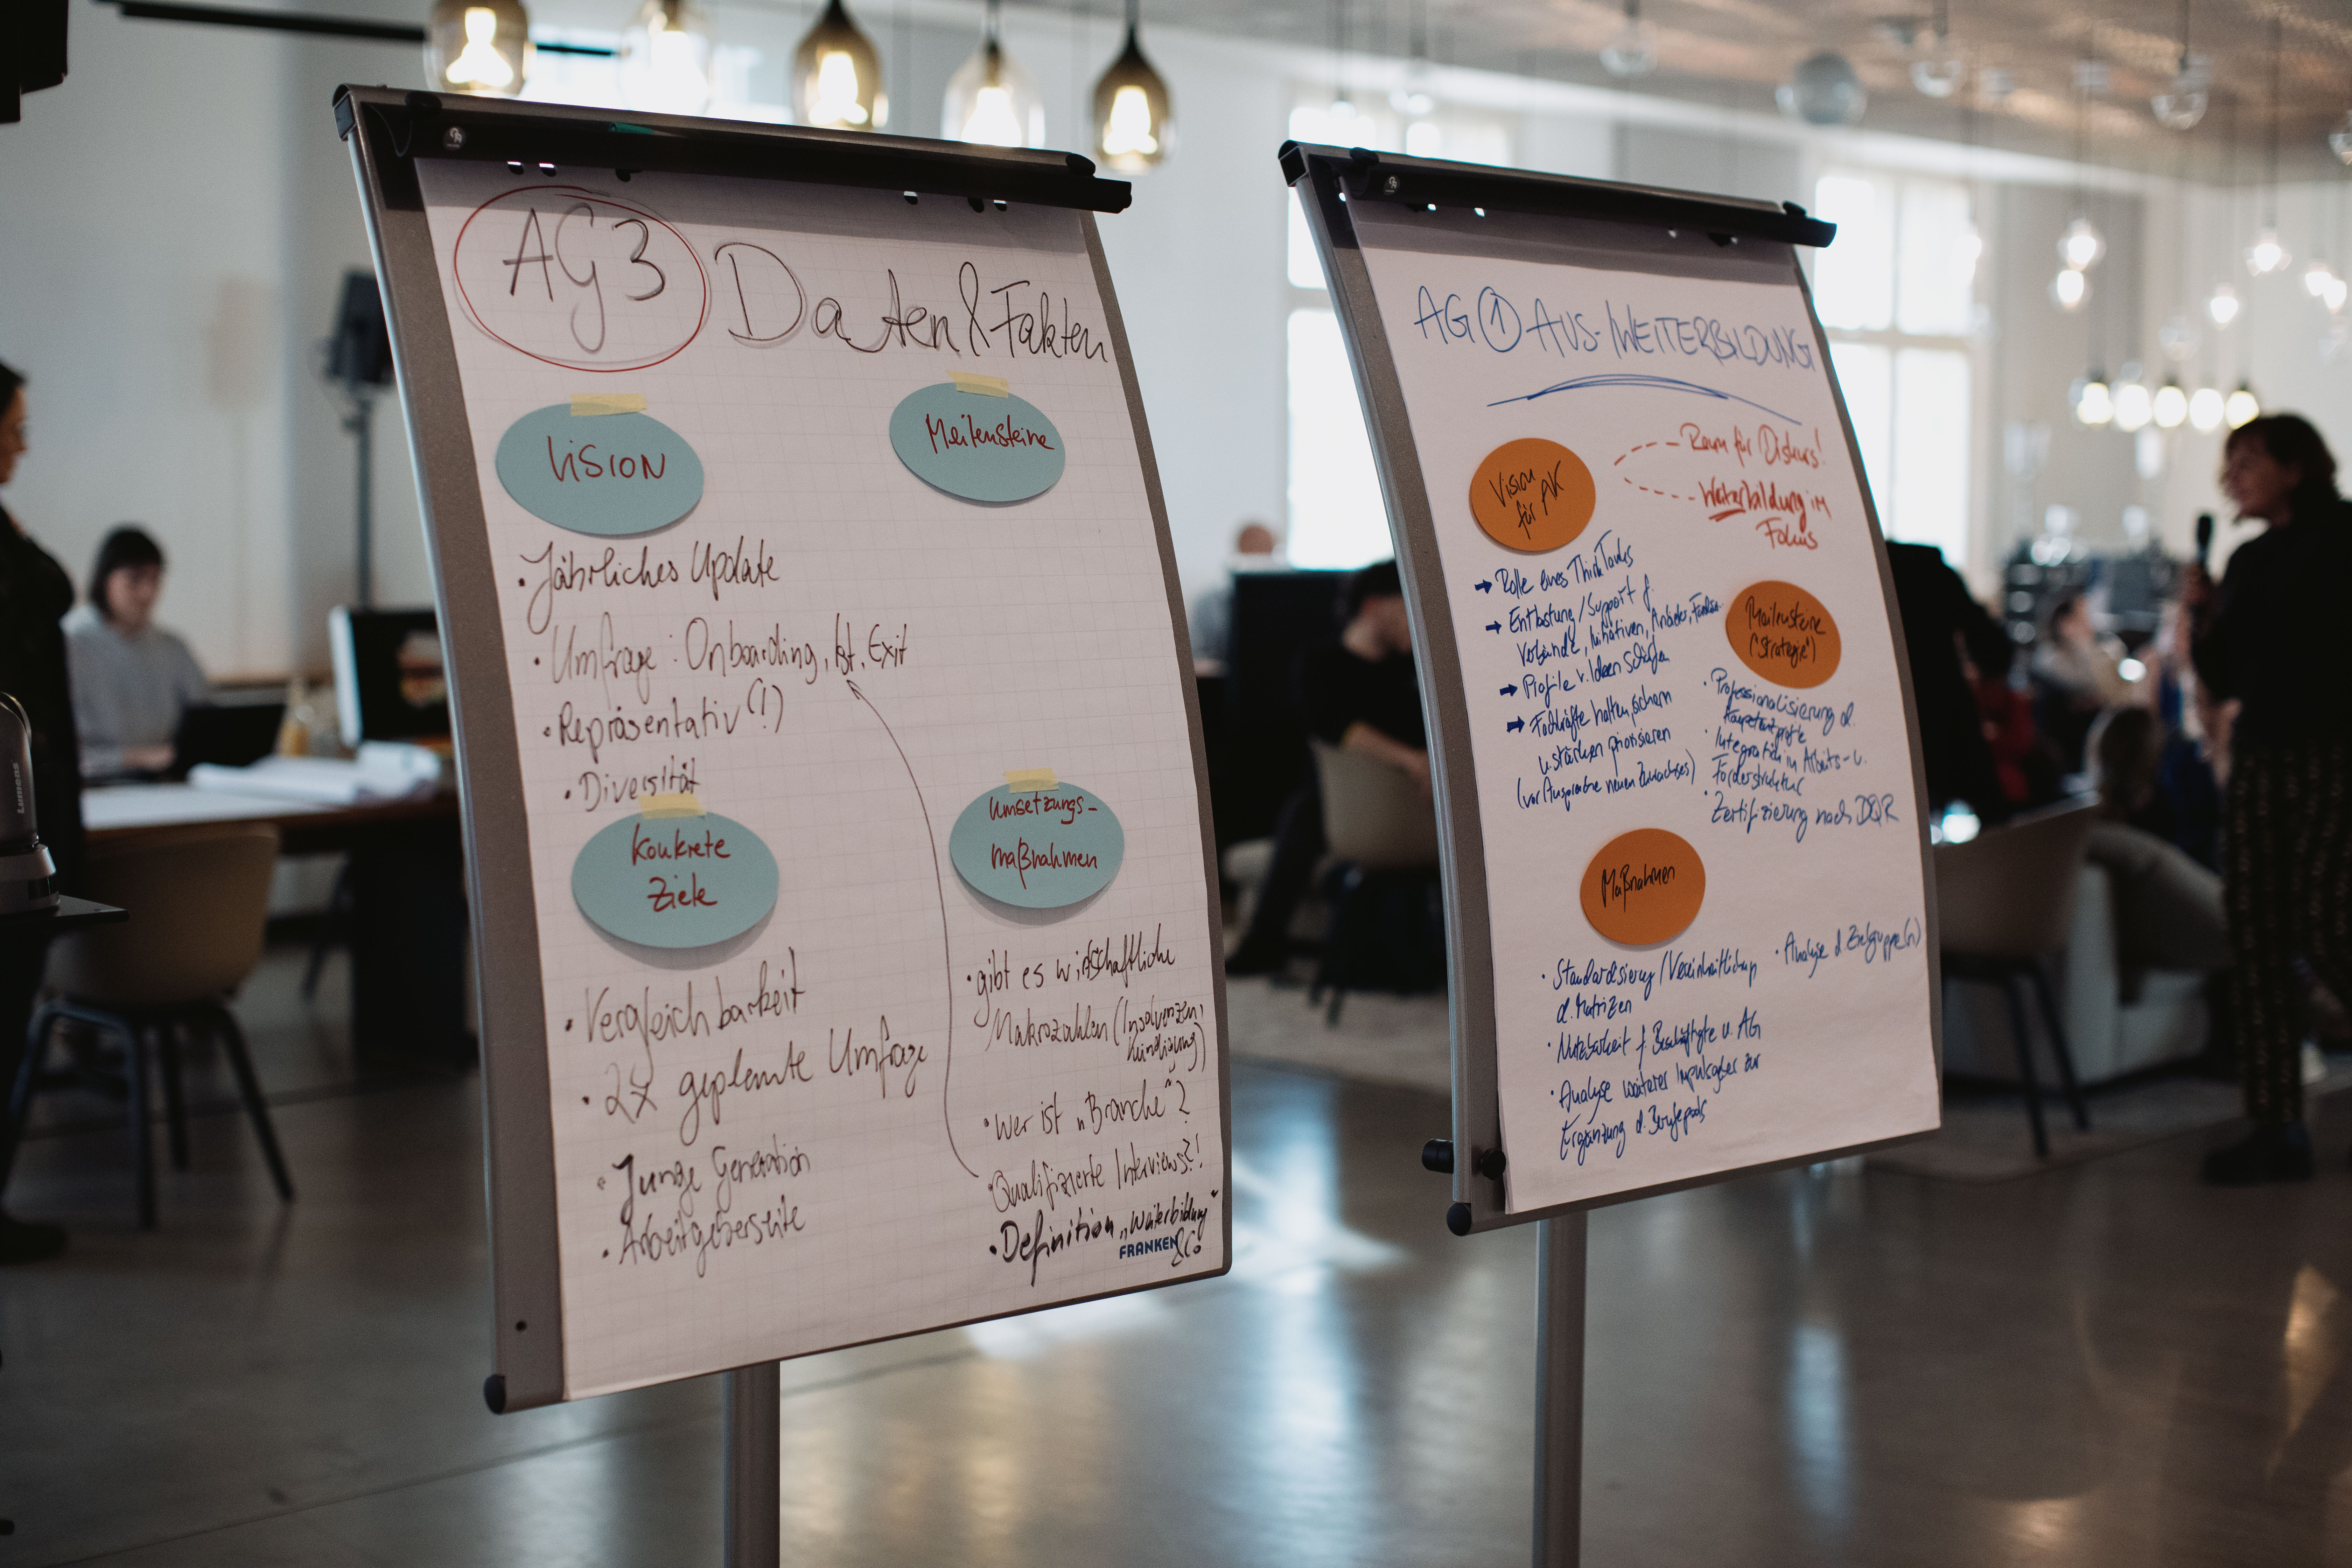 AG 3 Daten & Fakten
Vision
Meilensteine
• Jährliches Update
• Umfrage: Onboarding, Ist, Exit
• Repräsentativ (!)
• Diversität
Konkrete
Ziele
• Vergleichbarkeit
• 2x geplante Umfrage
• Junge Generation
• Arbeitgeberseite
Umsetzungs-
maßnahmen
• gibt es wirtschaftliche
Makrozahlen (Insolvenzen,
Kündigung)
• Wer ist „Branche"?
• Qualifizierte Interviews?!
• Definition „Weiterbildung"
FRANKEN
& Co
AG ① AUS-/WEITERBILDUNG
Raum für Diskurs!
Weiterbildung im
Fokus
Vision
für AK
→ Rolle eines ThinkTanks
→ Entlastung/Support f.
Verbände, Initiativen, Anbieter,
→ Profile v. Ideen schärfen
→ Fachkräfte halten, sichern
u. stärken priorisieren
(vor Ansprache neuen Zuwachses)
Meilensteine
("Strategie")
• Professionalisierung d.
• Integration in Arbeits- u.
Förderstruktur
• Zertifizierung nach DQR
Maßnahmen
• Standardisierung/Vereinheitlichung
d. Matrizen
• Nutzbarkeit f. Beschäftigte u. AG
• Analyse weiterer Impulsgeber zur
Ergänzung d. Berufepools
• Analyse d. Zielgruppe(n)
Lumens